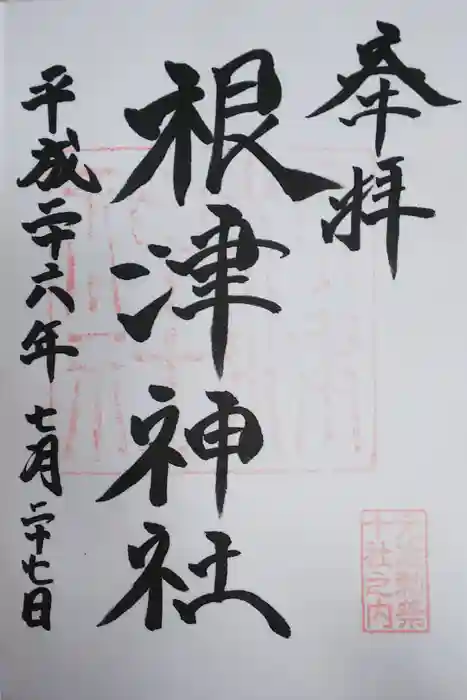 奉拝
根津神社
平成二十六年 七月二十七日
十社之内